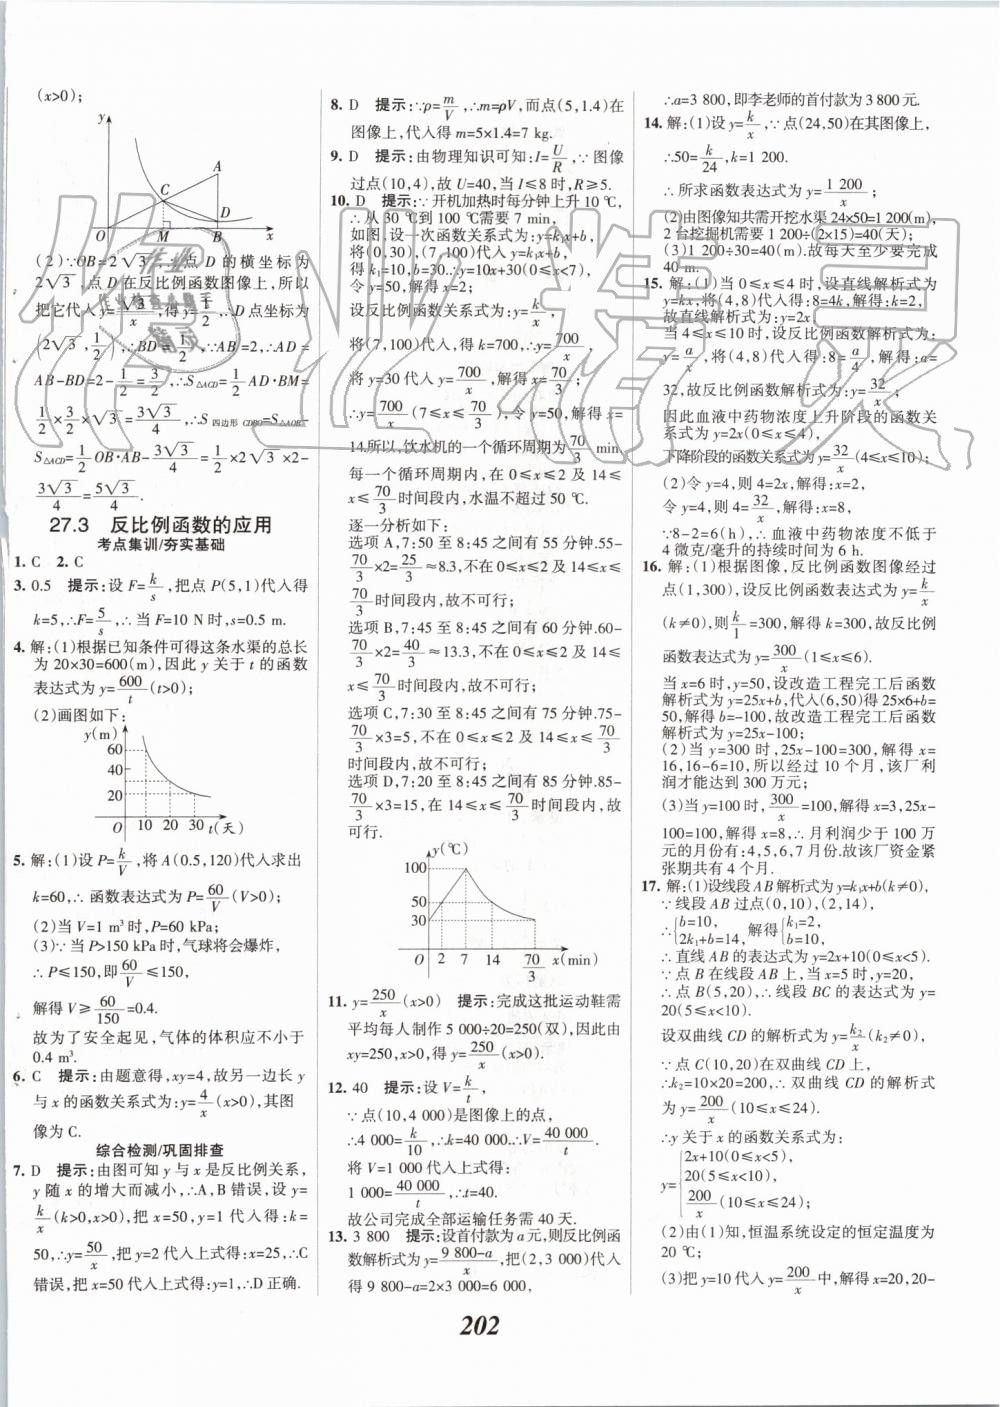 (x>0);
y
A
C
D
O
M
B
x
(2)∵OB=2√3,∴点D的横坐标为
2√3,点D在反比例函数图像上,所以
把它代入y=√3/x,得y=1/2,∴D点坐标为
(2√3,1/2),∴BD=1/2,∵AB=2,∴AD=
AB-BD=2-1/2=3/2,∴S△ACD=1/2AD·BM=
1/2×3/2×√3=3√3/4,∴S四边形CDBO=S△AOB-
S△ACD=1/2OB·AB-3√3/4=1/2×2√3×2-
3√3/4=5√3/4.
27.3 反比例函数的应用
考点集训/夯实基础
1. C 2. C
3. 0.5 提示:设F=k/s,把点P(5,1)代入得
k=5,∴F=5/s,∴当F=10 N时,s=0.5 m.
4. 解:(1)根据已知条件可得这条水渠的总长
为20×30=600(m),因此y关于t的函数
表达式为y=600/t(t>0);
(2)画图如下:
y(m)
60
40
20
O 10 20 30 t(天)
5. 解:(1)设P=k/V,将A(0.5,120)代入求出
k=60,∴函数表达式为P=60/V(V>0);
(2)当V=1 m³时,P=60 kPa;
(3)∵当P>150 kPa时,气球将会爆炸,
∴P≤150,即60/V≤150,
解得V≥60/150=0.4.
故为了安全起见,气体的体积应不小于
0.4 m³.
6. C 提示:由题意得,xy=4,故另一边长y
与x的函数关系式为:y=4/x(x>0),其图
像为C.
综合检测/巩固排查
7. D 提示:由图可知y与x是反比例关系,
y随x的增大而减小,∴A,B错误,设y=
k/x(k>0,x>0),把x=50,y=1代入得:k=
50,∴y=50/x,把y=2代入上式得:x=25,∴C
错误,把x=50代入上式得:y=1,∴D正确.
8. D 提示:∵ρ=m/V,∴m=ρV,而点(5,1.4)在
图像上,代入得m=5×1.4=7 kg.
9. D 提示:由物理知识可知:I=U/R,∵图像
过点(10,4),故U=40,当I≤8时,R≥5.
10. D 提示:∵开机加热时每分钟上升10 ℃,
∴从30 ℃到100 ℃需要7 min,
如图,设一次函数关系式为:y=k₁x+b,
将(0,30),(7,100)代入y=k₁x+b,
得k₁=10,b=30.∴y=10x+30(0≤x<7),
令y=50,解得x=2;
设反比例函数关系式为:y=k/x,
将(7,100)代入,得k=700,∴y=700/x,
将y=30代入y=700/x,解得x=70/3;
∴y=700/x(7≤x≤70/3),令y=50,解得x=
14.所以,饮水机的一个循环周期为70/3 min.
每一个循环周期内,在0≤x≤2及14≤
x≤70/3时间段内,水温不超过50 ℃.
逐一分析如下:
选项A,7:50至8:45之间有55分钟.55-
70/3×2=25/3≈8.3,不在0≤x≤2及14≤x≤
70/3时间段内,故不可行;
选项B,7:45至8:45之间有60分钟.60-
70/3×2=40/3≈13.3,不在0≤x≤2及14≤
x≤70/3时间段内,故不可行;
选项C,7:30至8:45之间有75分钟.75-
70/3×3=5,不在0≤x≤2及14≤x≤70/3
时间段内,故不可行;
选项D,7:20至8:45之间有85分钟.85-
70/3×3=15,在14≤x≤70/3时间段内,故
可行.
y(℃)
100
50
30
O 2 7 14 70/3 x(min)
11. y=250/x(x>0) 提示:完成这批运动鞋需
平均每人制作5 000÷20=250(双),因此由
xy=250,x>0,得y=250/x(x>0).
12. 40 提示:设V=k/t,
∵点(10,4 000)是图像上的点,
∴4 000=k/10,∴k=40 000.∴V=40 000/t.
将V=1 000代入上式得:
1 000=40 000/t,∴t=40.
故公司完成全部运输任务需40天.
13. 3 800 提示:设首付款为a元,则反比例函
数解析式为y=9 800-a/x,把(2,3 000)代入
得9 800-a=2×3 000=6 000,
∴a=3 800,即李老师的首付款为3 800元.
14. 解:(1)设y=k/x,∵点(24,50)在其图像上,
∴50=k/24,k=1 200.
∴所求函数表达式为y=1 200/x;
(2)由图像知共需开挖水渠24×50=1 200(m),
2台挖掘机需要1 200÷(2×15)=40(天);
(3)1 200÷30=40(m).故每天至少要完成
40 m.
15. 解:(1)当0≤x≤4时,设直线解析式为
y=kx,将(4,8)代入得:8=4k,解得:k=2,
故直线解析式为:y=2x;
当4≤x≤10时,设反比例函数解析式为:
y=a/x,将(4,8)代入得:8=a/4,解得:a=
32,故反比例函数解析式为:y=32/x;
因此血液中药物浓度上升阶段的函数关
系式为y=2x(0≤x≤4),
下降阶段的函数关系式为y=32/x(4≤x≤10);
(2)令y=4,则4=2x,解得:x=2,
令y=4,则4=32/x,解得:x=8,
∵8-2=6(h),∴血液中药物浓度不低于
4微克/毫升的持续时间为6 h.
16. 解:(1)根据图像,反比例函数图像经过
点(1,300),设反比例函数表达式为y=k/x
(k≠0),则k/1=300,解得k=300,故反比例
函数表达式为y=300/x(1≤x≤6).
当x=6时,y=50,设改造工程完工后函数
解析式为y=25x+b,代入(6,50)得25×6+b=
50,解得b=-100,故改造工程完工后函数
解析式为y=25x-100;
(2)当y=300时,25x-100=300,解得x=
16,16-6=10,所以经过10个月,该厂利
润才能达到300万元;
(3)当y=100时,300/x=100,解得x=3,25x-
100=100,解得x=8,∴月利润少于100万
元的月份有:4,5,6,7月份.故该厂资金紧
张期共有4个月.
17. 解:(1)设线段AB解析式为y=k₁x+b(k≠0),
∵线段AB过点(0,10),(2,14),
∴{b=10, 2k₁+b=14, 解得{k₁=2, b=10,
∴直线AB的表达式为y=2x+10(0≤x<5).
∵点B在线段AB上,当x=5时,y=20,
∴点B(5,20),∴线段BC的表达式为y=
20(5≤x<10).
设双曲线CD的解析式为y=k₂/x(k₂≠0),
∵点C(10,20)在双曲线CD上,
∴k₂=10×20=200,∴双曲线CD的解析式
为y=200/x(10≤x≤24).
∴y关于x的函数关系式为:
y={2x+10(0≤x<5), 20(5≤x<10), 200/x(10≤x≤24);
(2)由(1)知,恒温系统设定的恒定温度为
20 ℃;
(3)把y=10代入y=200/x中,解得x=20,20-
202